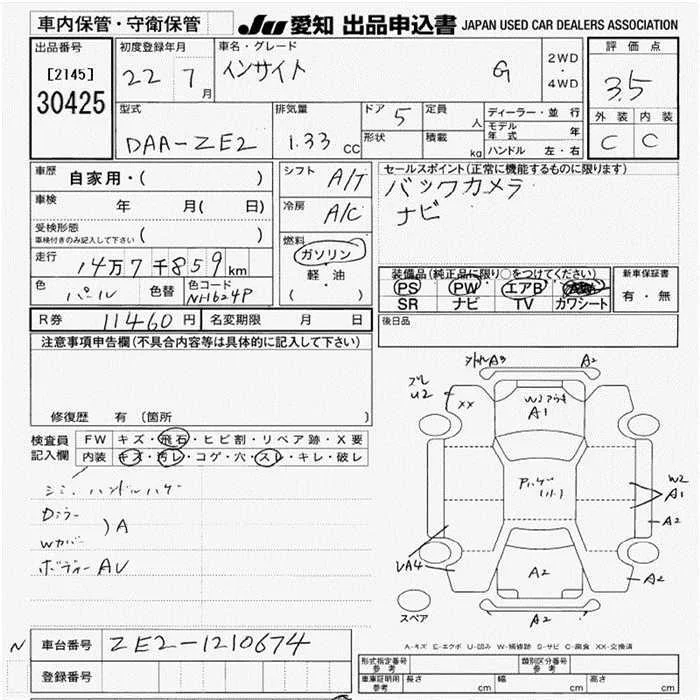 車内保管・守衛保管
JU 愛知 出品申込書 JAPAN USED CAR DEALERS ASSOCIATION
出品番号
[2145]
30425
初度登録年月
22 7月
車名・グレード
インサイト G
2WD
・
4WD
評価点
3.5
外装 内装
C C
型式
DAA-ZE2
排気量
1.33 CC
ドア 5
形状
定員 人
積載 kg
ディーラー・並行
モデル年式 年
ハンドル 左・右
車歴 自家用・( )
車検 年 月( 日)
受検形態
車検付きのみ記入して下さい ( )
走行 14万7千859km
色 パール 色替 色コード NH624P
シフト A/T
冷房 A/C
燃料
ガソリン
軽・油
( )
セールスポイント(正常に機能するものに限ります)
バックカメラ
ナビ
装備品(純正品に限り○をつけてください)
PS PW エアB
SR ナビ TV カワシート
新車保証書
有・無
R券 11460円 名変期限 月 日
後日品
注意事項申告欄(不具合内容等は具体的に記入して下さい)
修復歴 有(箇所 )
検査員記入欄
FW キズ・飛石・ヒビ割・リペア跡・X要
内装 キズ・汚レ・コゲ・穴・スレ・キレ・破レ
シミ ハンドルハゲ
Dミラー
Wカバー ) A
ボディー AU
A3 A2
U2
XX
A1
W2
A1
A2
A2
A2
A2
スペア
A-キズ E-エクボ U-凹み W-補修跡 S-サビ C-腐食 XX-交換済
N
車台番号 ZE2-1210674
登録番号
形式指定番号 参考
類別区分番号 参考
車庫証明用 参考 長さ cm 幅 cm 高さ cm